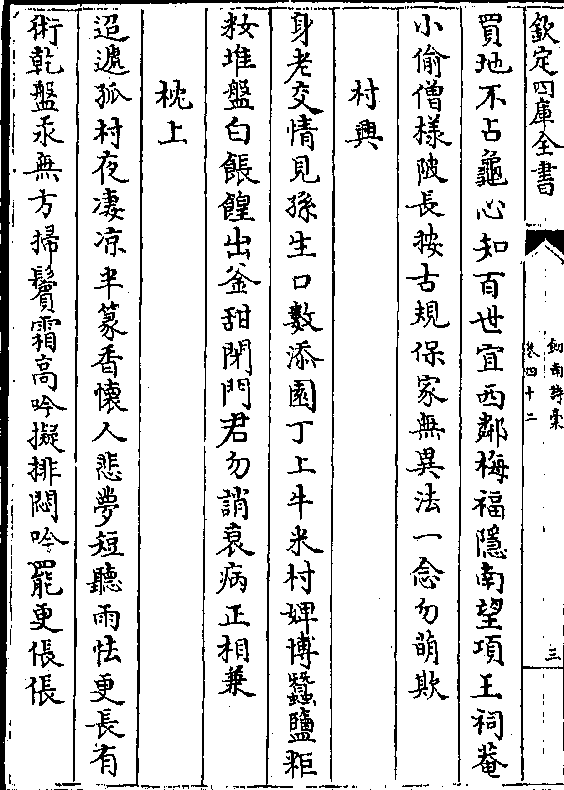 欽定四庫全書
劍南詩稾
卷四十二
三
買地不占龜心知百世宜西鄰梅福隱南望項王祠菴
小偷僧樣陂長按古規保家無異法一念勿萌欺
村興
身老交情見孫生口數添園丁上牛米村婢博蠶鹽粔
籹堆盤白餦餭出釜甜閉門君勿誚衰病正相兼
枕上
迢遞孤村夜凄凉半篆香懷人悲夢短聽雨怯更長有
術乾盤汞無方掃鬢霜高吟擬排悶吟罷更倀倀